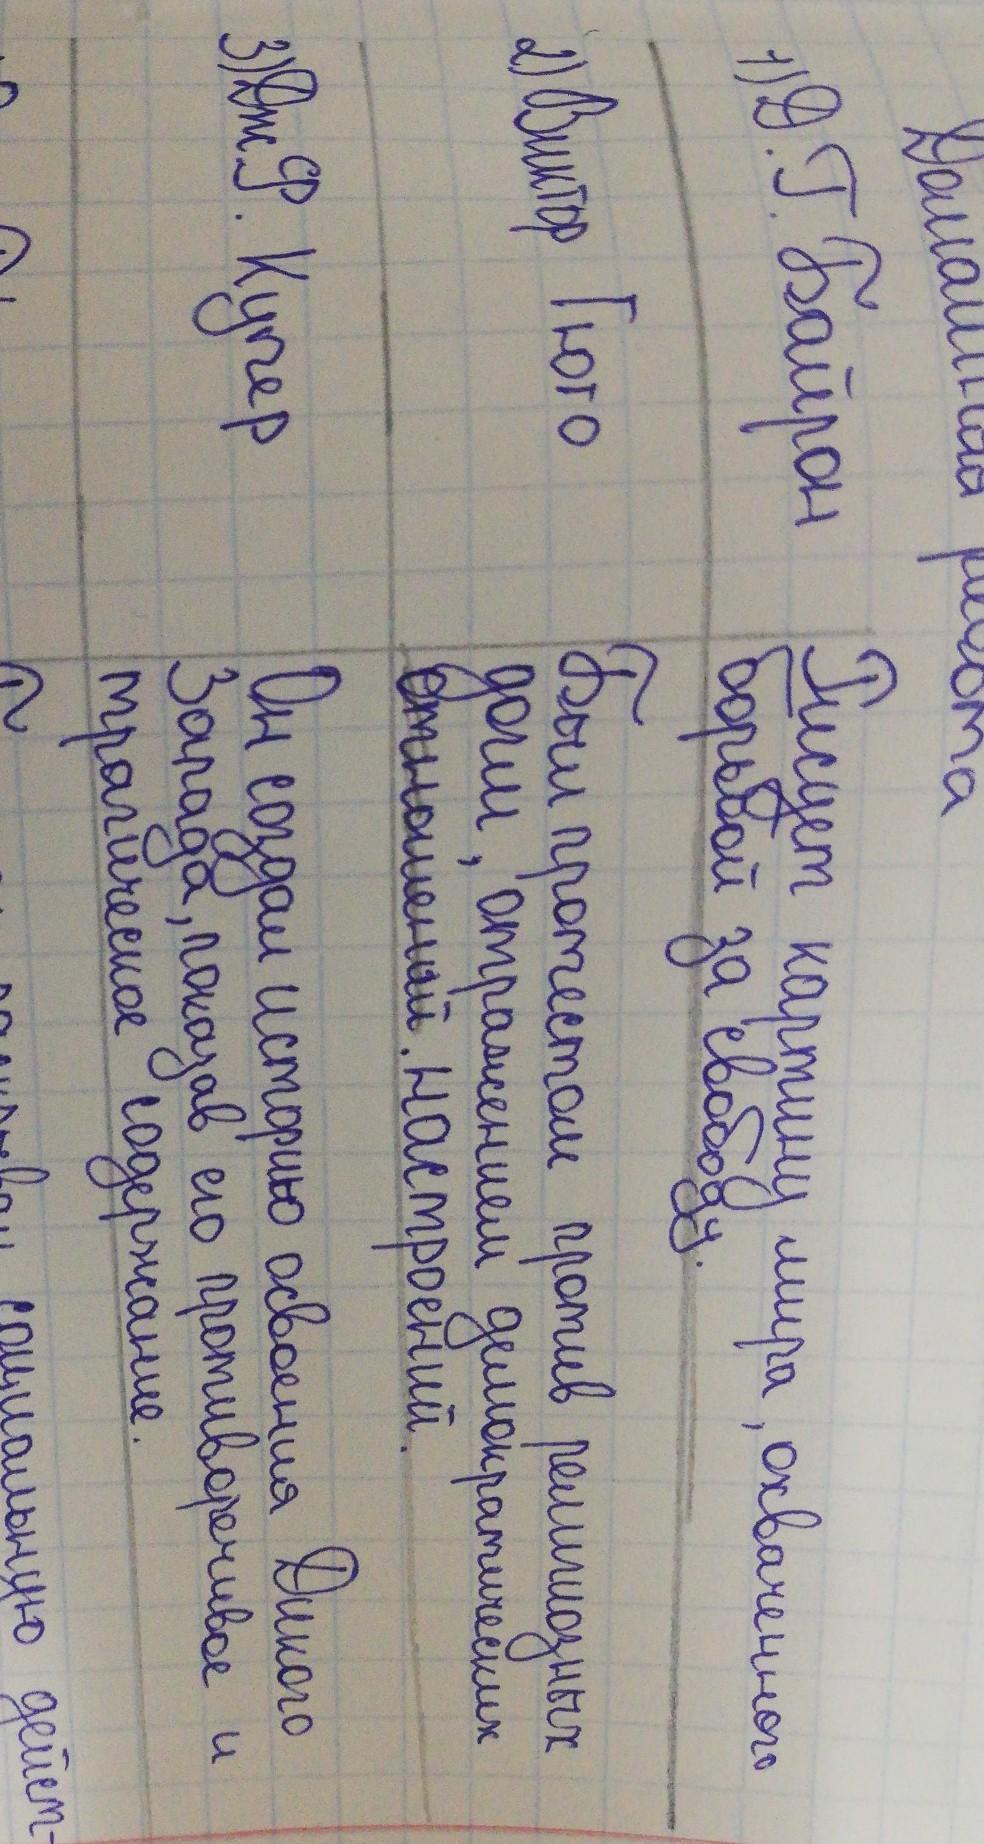 Домашняя работа
1) Д. Г. Байрон
Рисует картину мира, охваченного
борьбой за свободу.
2) Виктор Гюго
Был протестом против религиозных
догм, отражением демократических
отношений. настроений.
3) Дж. Ф. Купер
Он создал историю освоения Дикого
Запада, показав его противоречивое и
трагическое содержание.
социальную дейст-